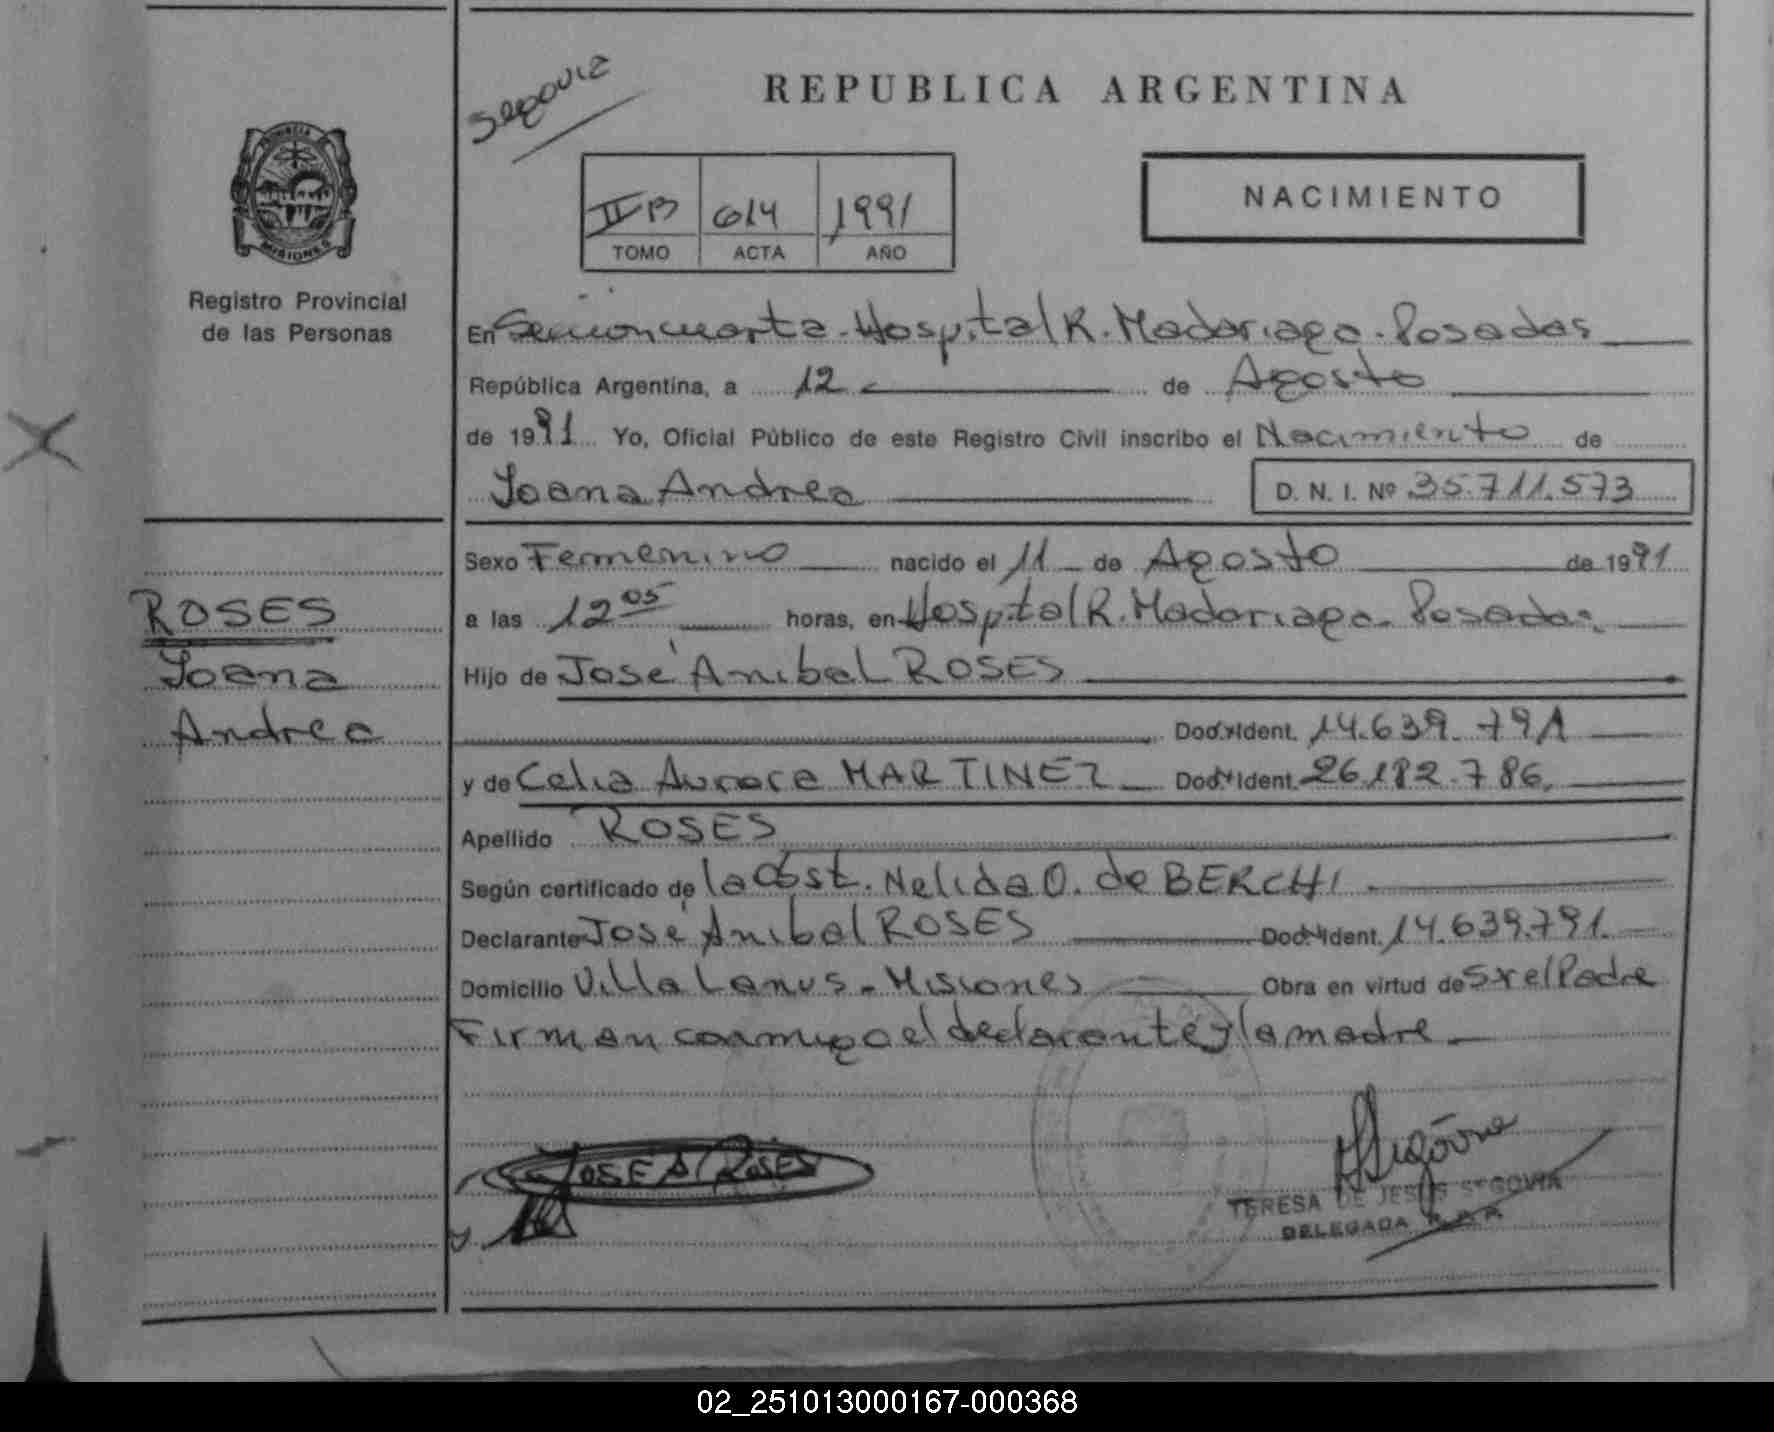 Segovia
REPUBLICA ARGENTINA
PROVINCIA
MISIONES
Registro Provincial
de las Personas
II B 614 1991
TOMO ACTA AÑO
NACIMIENTO
En Sección cuarta - Hospital R. Madariaga - Posadas
República Argentina, a 12 de Agosto
de 1991 Yo, Oficial Público de este Registro Civil inscribo el Nacimiento de
Yoana Andrea D. N. I. Nº 35.711.573
ROSES
Yoana
Andrea
Sexo Femenino nacido el 11 de Agosto de 1991
a las 12 05 horas, en Hospital R. Madariaga - Posadas.
Hijo de José Anibal ROSES
Doc. Ident. 14.639.791
y de Celia Aurora MARTINEZ Doc. Ident. 26.182.786.
Apellido ROSES
Según certificado de la Obst. Nelida O. de BERCHI
Declarante José Anibal ROSES Doc. Ident. 14.639.791.
Domicilio Villa Lanus - Misiones Obra en virtud de Sr el Padre
Firman conmigo el declarante y la madre.
JOSE A ROSES
y
Segovia
TERESA DE JESUS SEGOVIA
DELEGADA
02_251013000167-000368